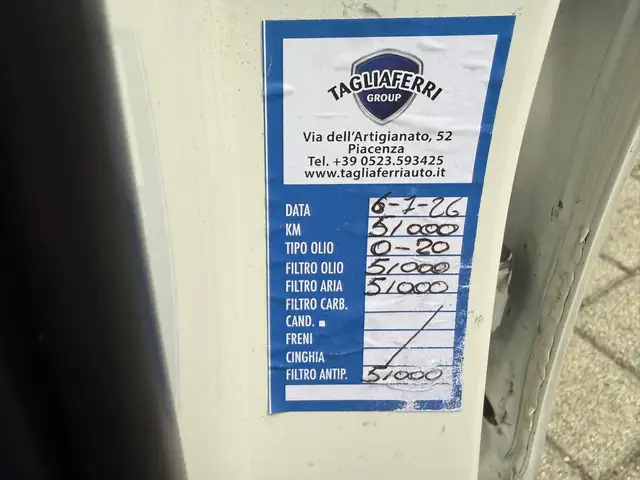 TAGLIAFERRI
GROUP
Via dell'Artigianato, 52
Piacenza
Tel. +39 0523.593425
www.tagliaferriauto.it
DATA 6-1-26
KM 51000
TIPO OLIO 0-20
FILTRO OLIO 51000
FILTRO ARIA 51000
FILTRO CARB.
CAND.
FRENI
CINGHIA
FILTRO ANTIP. 51000